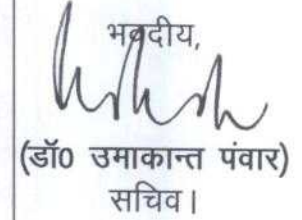 भवदीय,
(डॉ0 उमाकान्त पंवार)
सचिव।